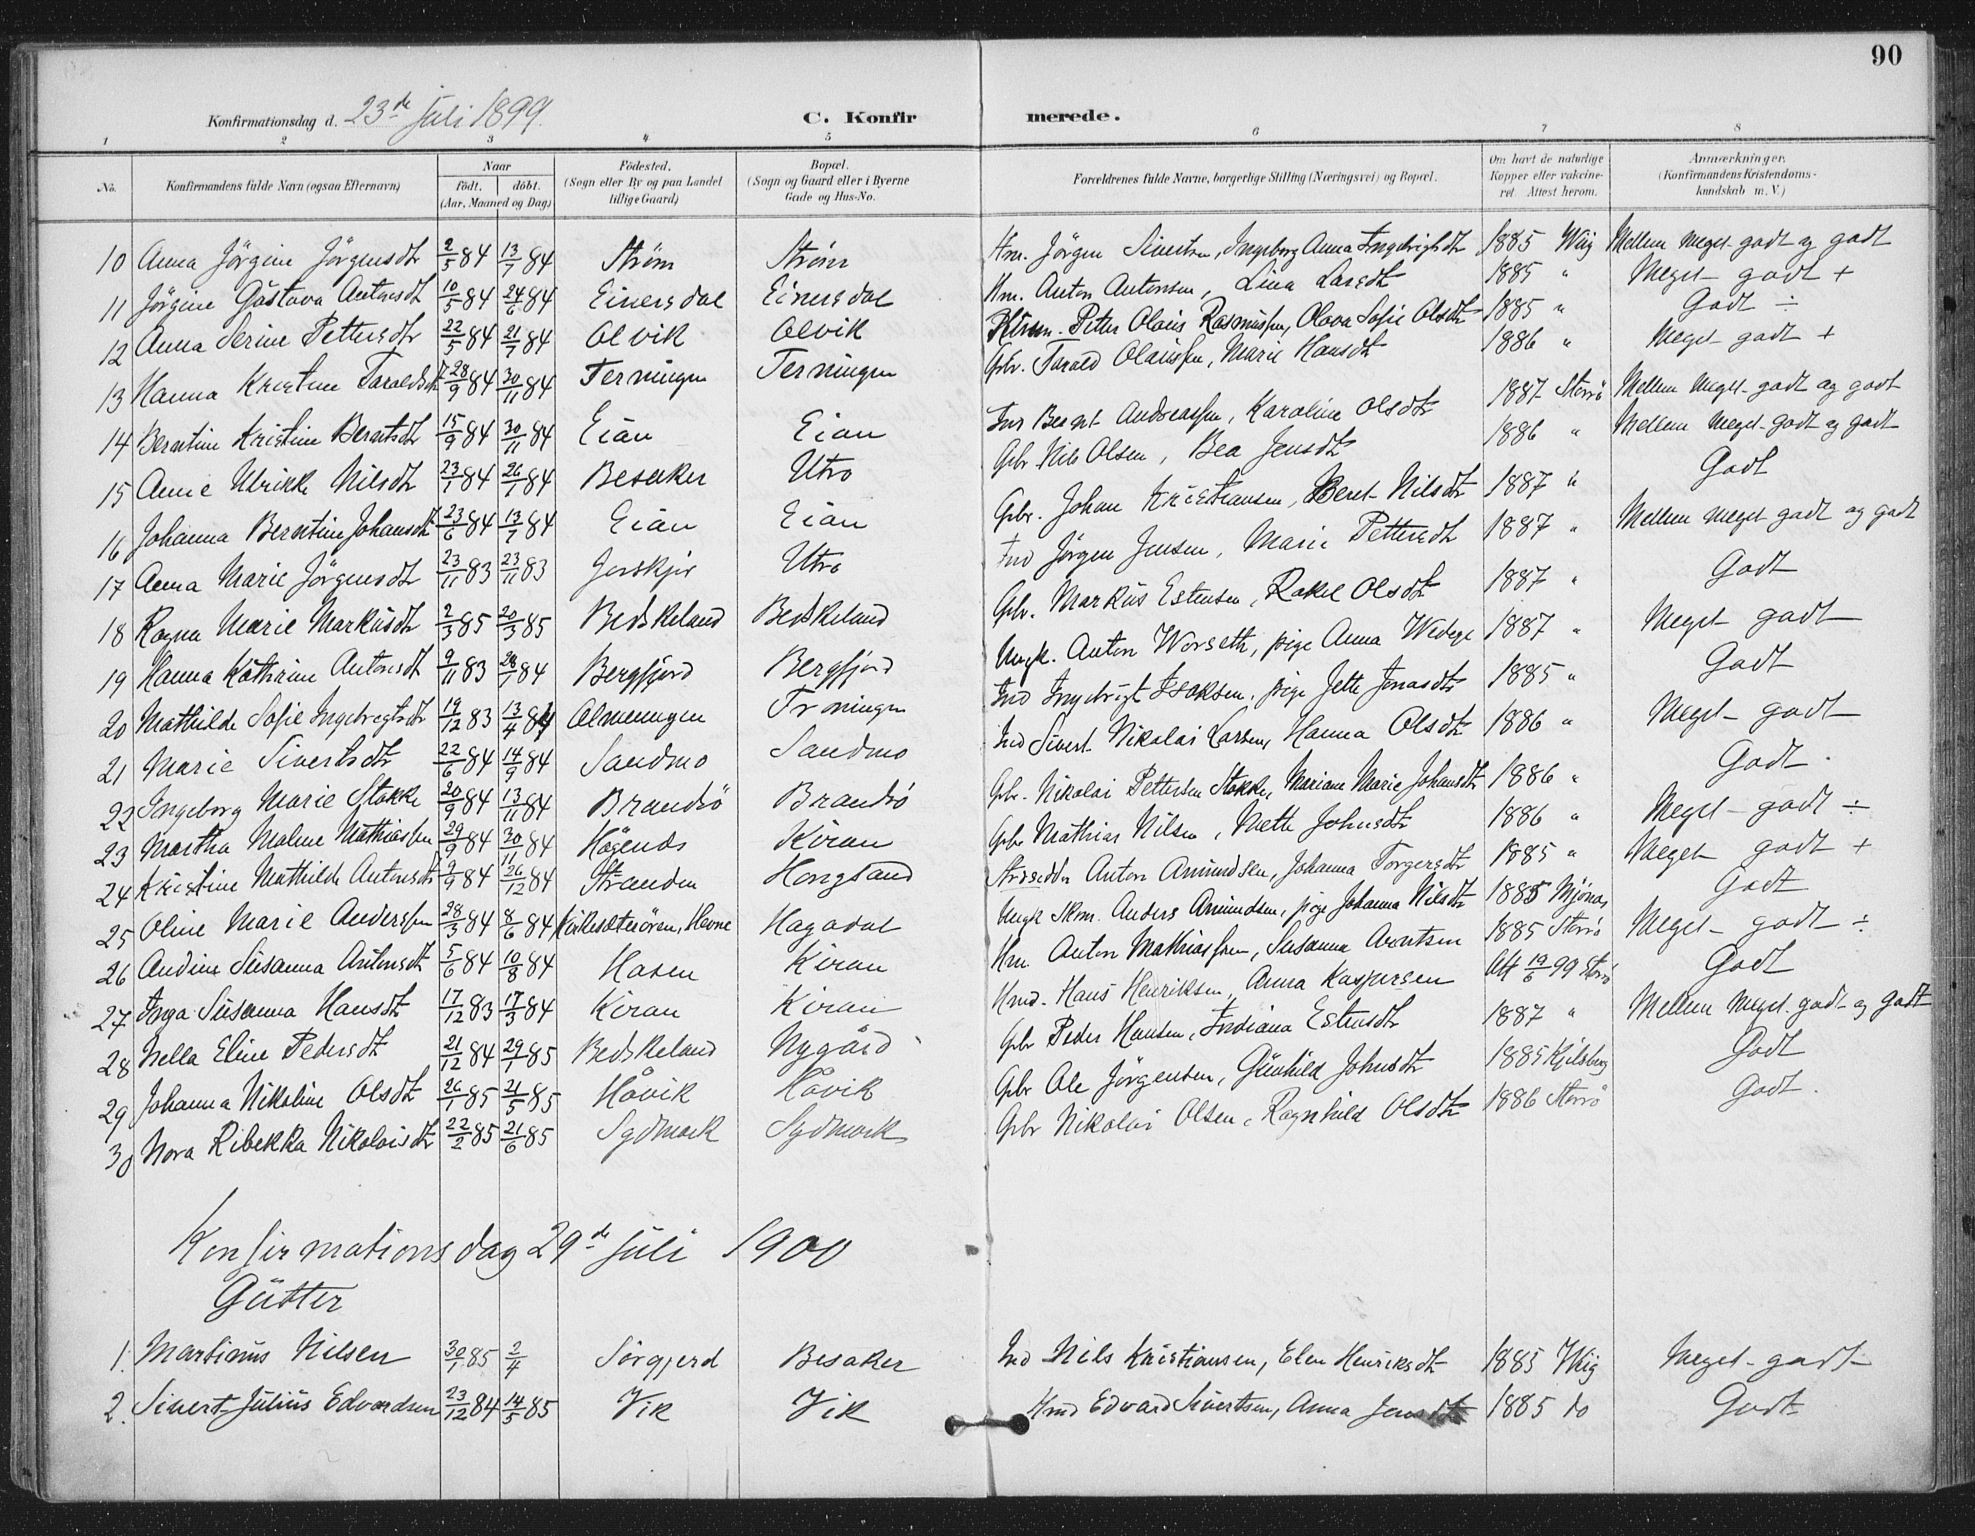 90
Konfirmationsdag d. 23de Juli 1899. C. Konfirmerede.
1 2 3 4 5 6 7 8
No. Konfirmandens fulde Navn (ogsaa Efternavn) Naar født. døbt. (Aar, Maaned og Dag) Fødested. (Sogn eller By og paa Landet tillige Gaard) Bopæl. (Sogn og Gaard eller i Byerne Gade og Hus-No. Forældrenes fulde Navne, borgerlige Stilling (Næringsvei) og Bopæl. Om havt de naturlige Kopper eller vakcineret. Attest herom. Anmærkninger. (Konfirmandens Kristendomskundskab m. V.)
10 Anna Jörgine Jörgensdt 2/5 84 13/7 84 Ström Ström Hm. Jörgen Sivertsen, Ingeborg Anna Ingebrigtsdt 1885 Mellem meget godt og godt
11 Jörgine Gustava Antonsdt 10/5 84 24/6 84 Einersdal Einersdal Hm. Anton Antonsen, Lina Larsdt 1885 " Meget godt +
12 Anna Serine Pettersdt 22/5 84 21/7 84 Olvik Olvik Peter Olaus Rasmussen, Olava Sofie Olsdt 1885 " Godt ÷
13 Hanna Kristine Taraldsdt 28/9 84 30/11 84 Terningen Terningen Gbr. Tarald Olaussen, Marie Hansdt 1886 " Meget godt +
14 Berntine Kristine Berntsdt 15/9 84 30/11 84 Eian Eian Ind Bernt Andreassen, Karoline Olsdt 1887 Storrö Mellem meget godt og godt
15 Anne Ulrikke Nilsdt 23/1 84 26/1 84 Besaker Utro Gbr Nils Olsen, Bea Jensdt 1886 " Mellem meget godt og godt
16 Johanna Berntine Johansdt 23/6 84 13/7 84 Eian Eian Gbr. Johan Kristiansen, Beret Nilsdt 1887 " Godt
17 Anna Marie Jörgensdt 23/11 83 23/11 83 Utro Ind Jörgen Jensen, Marie Pettersdt 1887 " Mellem meget godt og godt
18 Ragna Marie Markusdt 2/3 85 20/3 85 Beskeland Beskeland Gbr. Markus Estensen, Rakel Olsdt 1887 " Godt
19 Hanna Kathrine Antonsdt 9/11 83 28/1 84 Bergfjord Bergfjord Ungk. Anton Worseth, pige Anna Wedege 1887 " Meget godt
20 Mathilde Sofie Ingebregtsdt 19/12 83 13/4 84 Almenningen Trningen Ind Ingebrigt Isaksen, pige Jette Jonasdt 1885 " Godt
21 Marie Sivertsdt 22/6 84 14/9 84 Sandmo Sandmo Ind Sivert Nikolai Larsen, Hanna Olsdt 1886 " Meget godt
22 Ingeborg Marie Stokke 20/9 84 13/11 84 Brandsö Brandsö Gbr. Nikolai Pettersen Stokke, Mariane Marie Johansdt 1886 " Godt.
23 Martha Maline Mathiassen 29/9 84 30/11 84 Kiran Gbr Mathias Nilsen, Mette Johnsdt 1886 " Meget godt ÷
24 Kristine Mathilde Antonsdt 2/9 84 26/12 84 Stranden Hongsand Anton Amundsen, Johanna Torgersdt 1885 " Meget godt +
25 Oline Marie Anderssen 28/3 84 8/6 84 Kirkesæterören, Hevne Hagadal Ungk Skm. Anders Amundsen, pige Johanna Nilsdt 1885 Mjönes Godt
26 Andine Susanna Antonsdt 5/6 84 10/8 84 Hasen Kiran Hm. Anton Mathiassen, Susanna Arentsen 1885 Storrö Meget godt ÷
27 Inga Susanna Hansdt 17/12 83 17/3 84 Kiran Kiran Kmd. Hans Henriksen, Anna Kaspersen Att 19/6 99 Storrö Godt
28 Nella Eline Pedersdt 21/12 84 29/1 85 Beskeland Nygård Gbr Peder Hansen, Indiana Estensdt 1887 " Mellem meget godt og godt
29 Johanna Nikoline Olsdt 26/1 85 21/5 85 Håvik Håvik Gbr Ole Jörgensen, Gunhild Johnsdt 1885 Godt
30 Nora Ribekka Nikolaisdt 22/2 85 21/6 85 Sydmark Sydmark Gbr Nikolai Olsen, Ragnhild Olsdt 1886 Storrö Godt.
Konfirmationsdag 29de Juli 1900
Gutter
1. Martinus Nilsen 30/1 85 2/4 Sörgjerd Besaker Ind Nils Kristiansen, Elen Henriksdt 1885 Meget godt
2. Sivert Julius Edvardsen 23/12 84 14/5 85 Vik Vik Kmd Edvard Sivertsen, Anna Jensdt 1885 do Godt